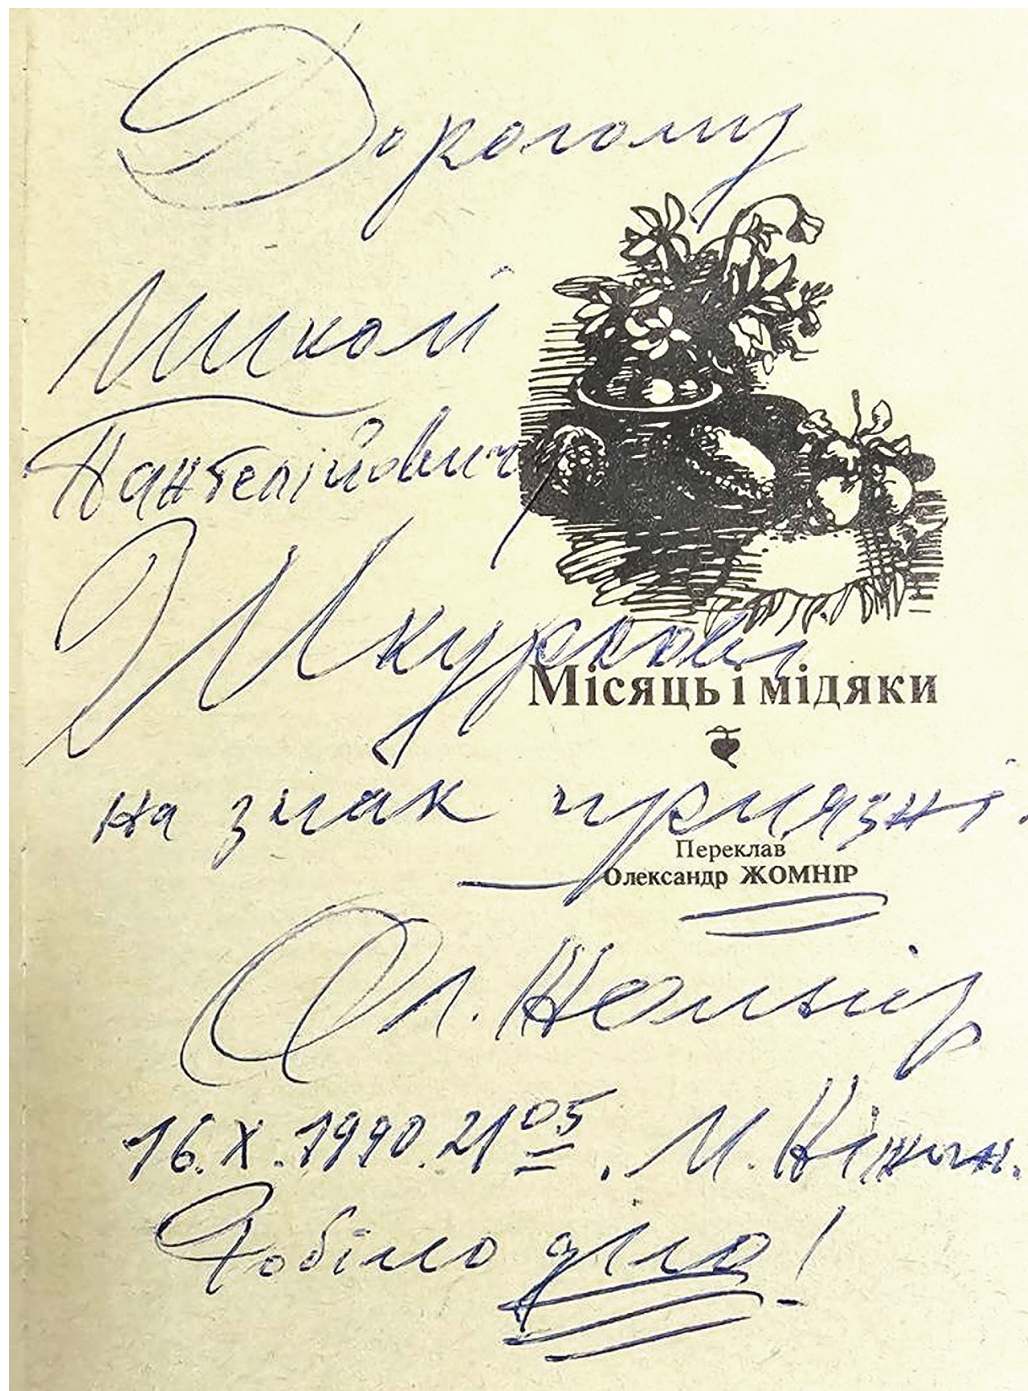 Дорогому
Миколі
Пантелійовичу
Шкуркові
Місяць і мідяки
на знак приязні.
Переклав
Олександр ЖОМНІР
Ол. Жомнір
16.X.1990. 21 05. м. Ніжин.
Робімо діло!